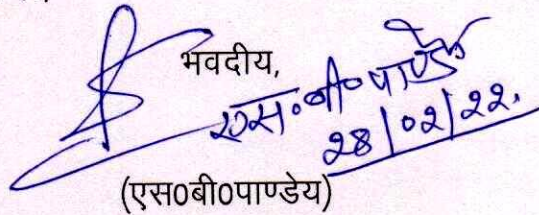 भवदीय,
एस०बी०पाण्डे
28/02/22.
(एस0बी0पाण्डेय)